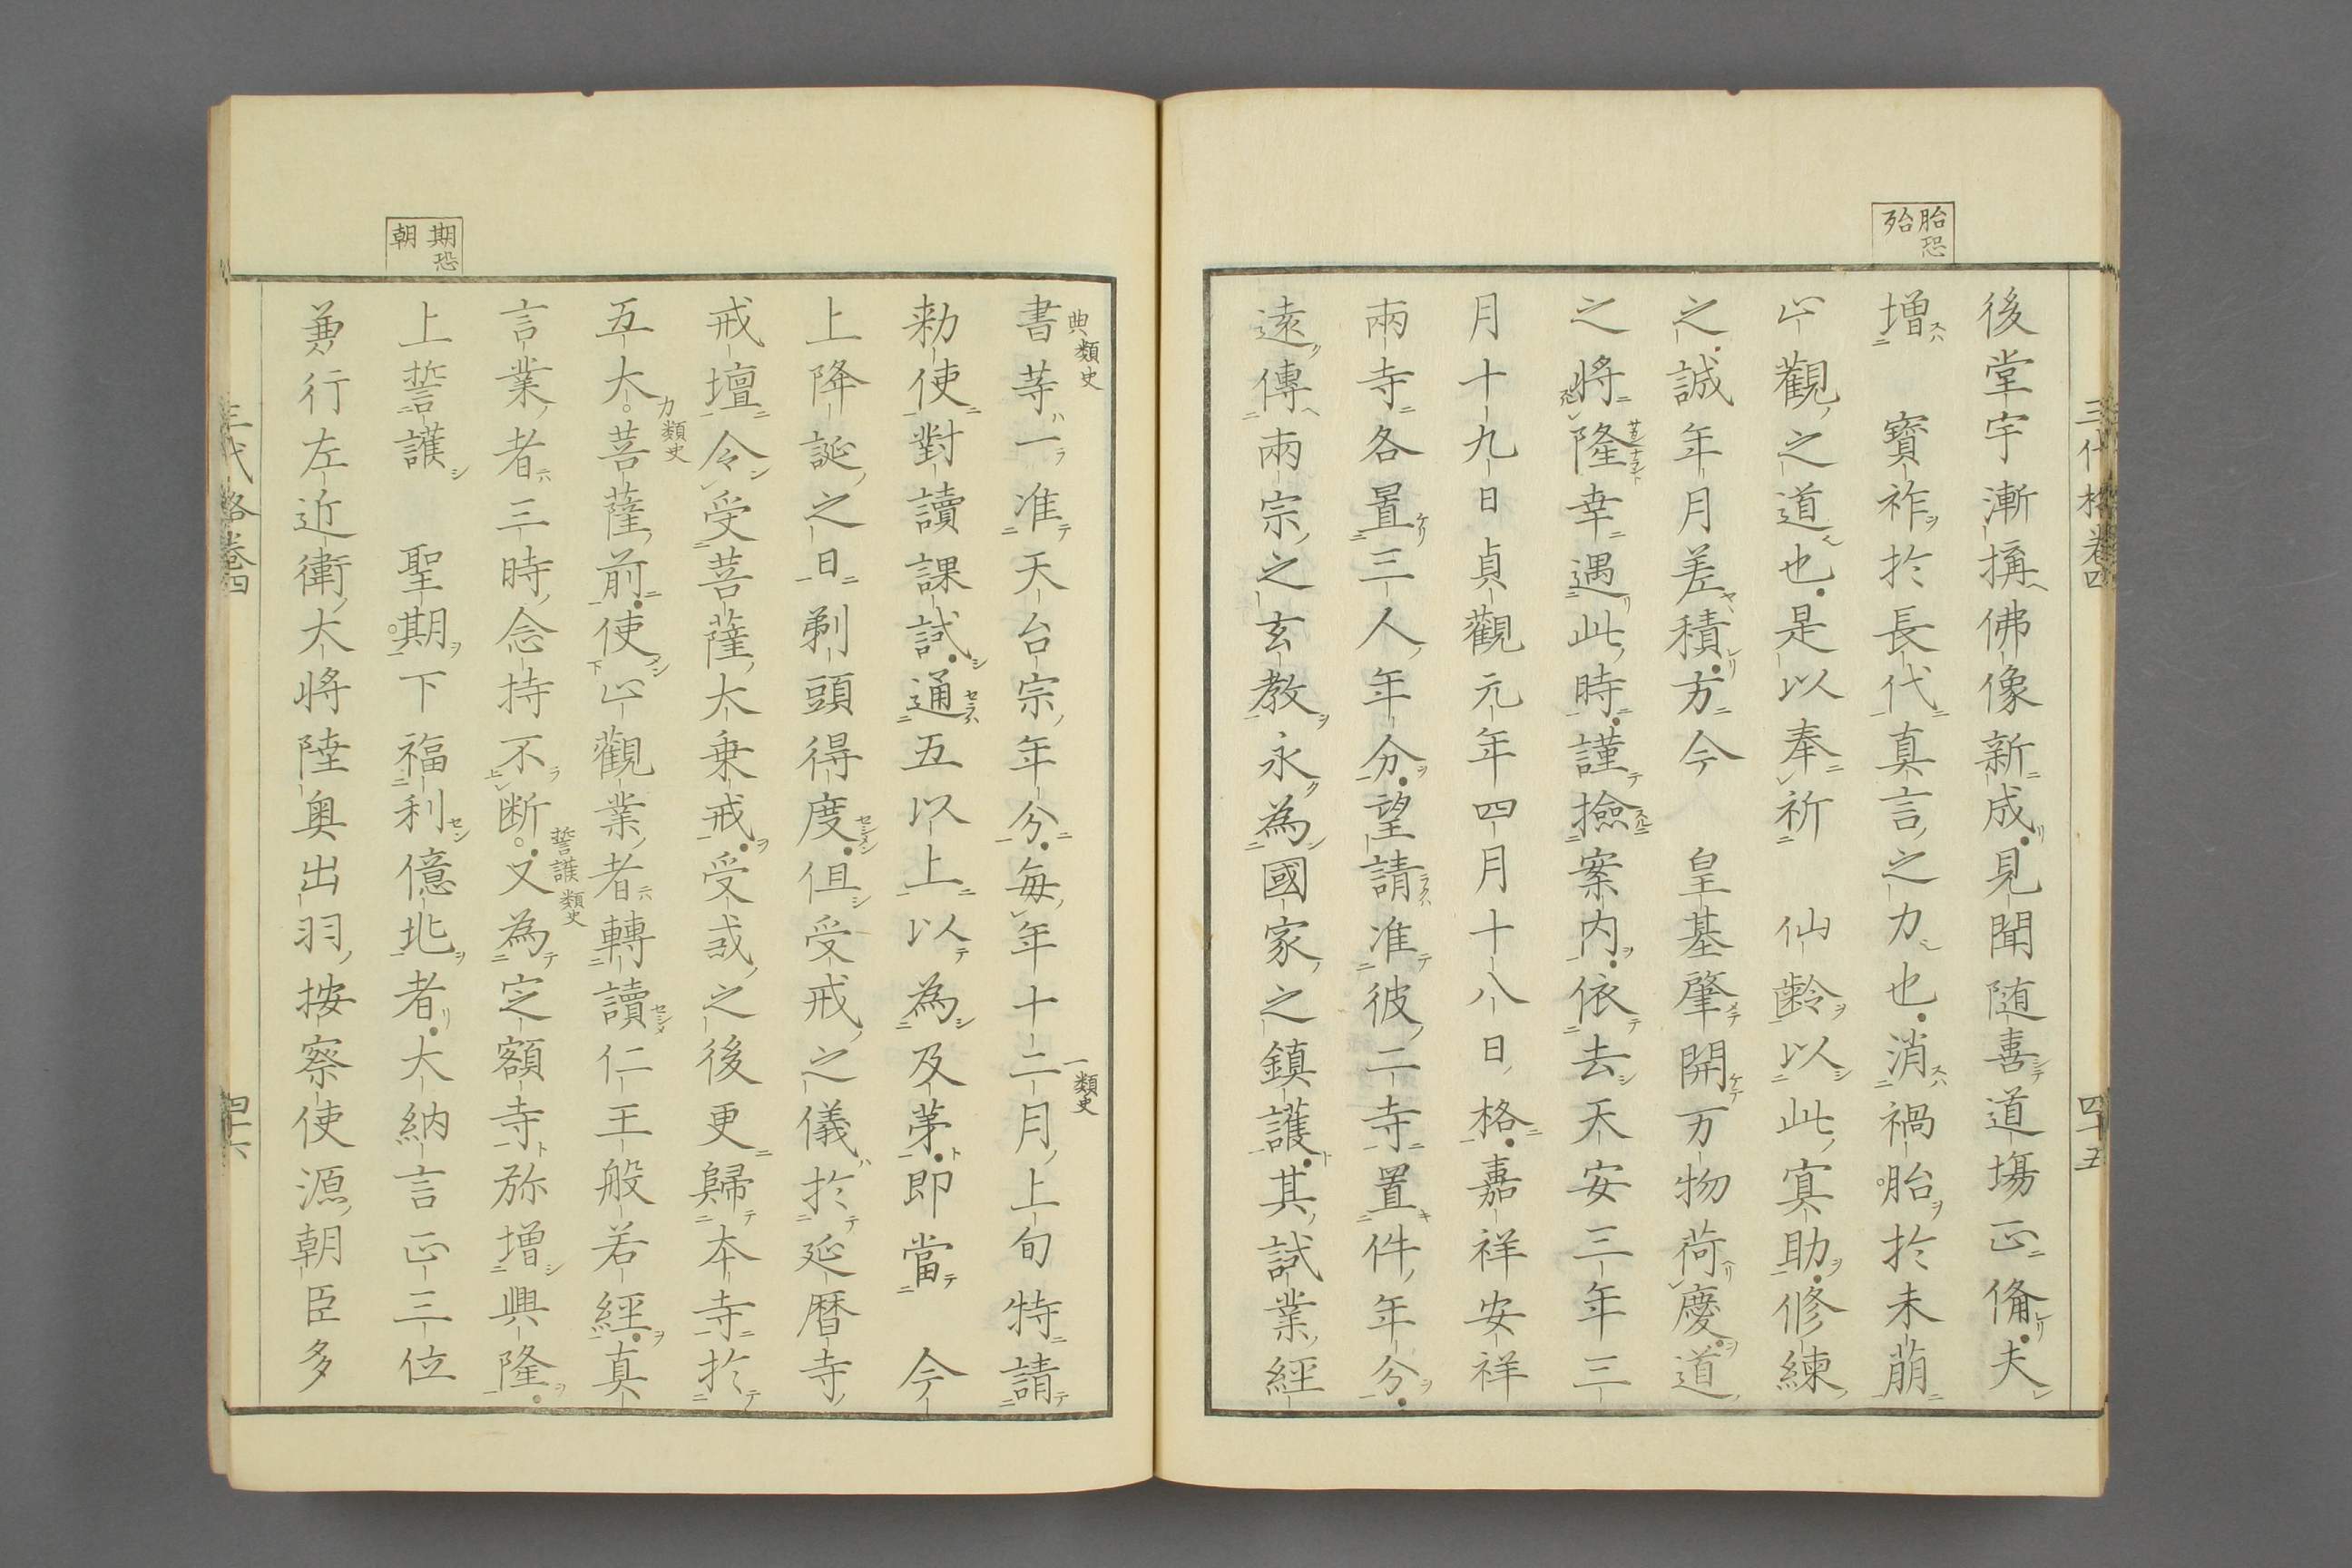 胎恐
殆
三代格卷四
四十五
後堂宇漸搆佛像新成見聞随喜道場正備夫
增　寶祚於長代真言之力也消禍胎於未萠
止觀之道也是以奉祈　仙齡以此寘助修練
之誠年月差積方今　皇基肇開万物荷慶道
之将隆幸遇此時謹撿案内依去天安三年三
月十九日貞觀元年四月十八日格嘉祥安祥
兩寺各置三人年分望請准彼二寺置件年分
遠傳兩宗之玄教永為國家之鎮護其試業經
書䓁一准天台宗年分每年十二月上旬特請
典類史
一類史
勑使對讀課試通五以上以為及茅即當　今
上降誕之日剃頭得度但受戒之儀於延暦寺
戒壇令受菩薩大乗戒受戒之後更歸本寺於
五大菩薩前使止觀業者轉讀仁王般若經真
力類史
言業者三時念持不断又為定額寺弥增興隆
誓護類史
上誓護　聖期下福利億兆者大納言正三位
期恐
朝
兼行左近衛大将陸奥出羽按察使源朝臣多
三代格卷四
四十六